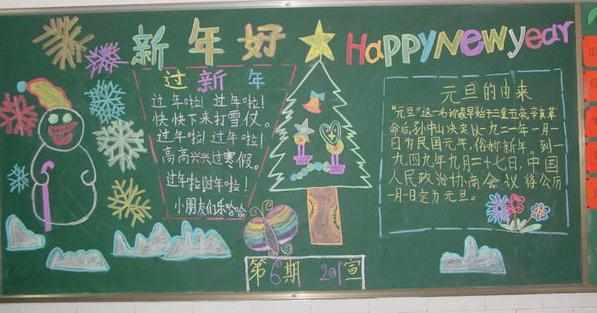 新年好
Happy New year
过新年
过年啦！过年啦！
快快下来打雪仗。
过年啦！过年啦！
高高兴兴过寒假。
过年啦！过年啦！
小朋友们乐哈哈
元旦的由来
"元旦"这一名词最早始于三皇五帝，辛亥革
命后，孙中山决定以一九一二年一月一
日为民国元年，俗称新年。到一
九四九年九月二十七日，中国
人民政治协商会议将公历
一月一日定为元旦。
第6期 201宣